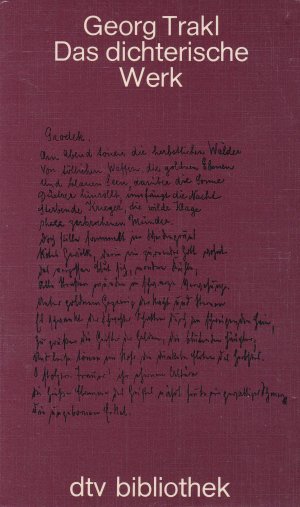 Georg Trakl
Das dichterische
Werk
Grodek.
Am Abend tönen die herbstlichen Wälder
Von tödlichen Waffen, die goldnen Ebenen
Und blauen Seen, darüber die Sonne
Düstrer hinrollt, umfängt die Nacht
Sterbende Krieger, die wilde Klage
Ihrer zerbrochenen Münder.
Doch stille sammelt im Weidengrund
Rotes Gewölk, darin ein zürnender Gott wohnt
Das vergossne Blut sich, mondne Kühle;
Alle Straßen münden in schwarze Verwesung.
Unter goldnem Gezweig der Nacht und Sternen
Es schwankt der Schwester Schatten durch den schweigenden Hain,
Zu grüßen die Geister der Helden, die blutenden Häupter;
Und leise tönen im Rohr, die dunklen Flöten des Herbstes.
O stolzere Trauer! ihr ehernen Altäre
Die heiße Flamme des Geistes nährt heute ein gewaltiger Schmerz
Die ungebornen Enkel.
dtv bibliothek